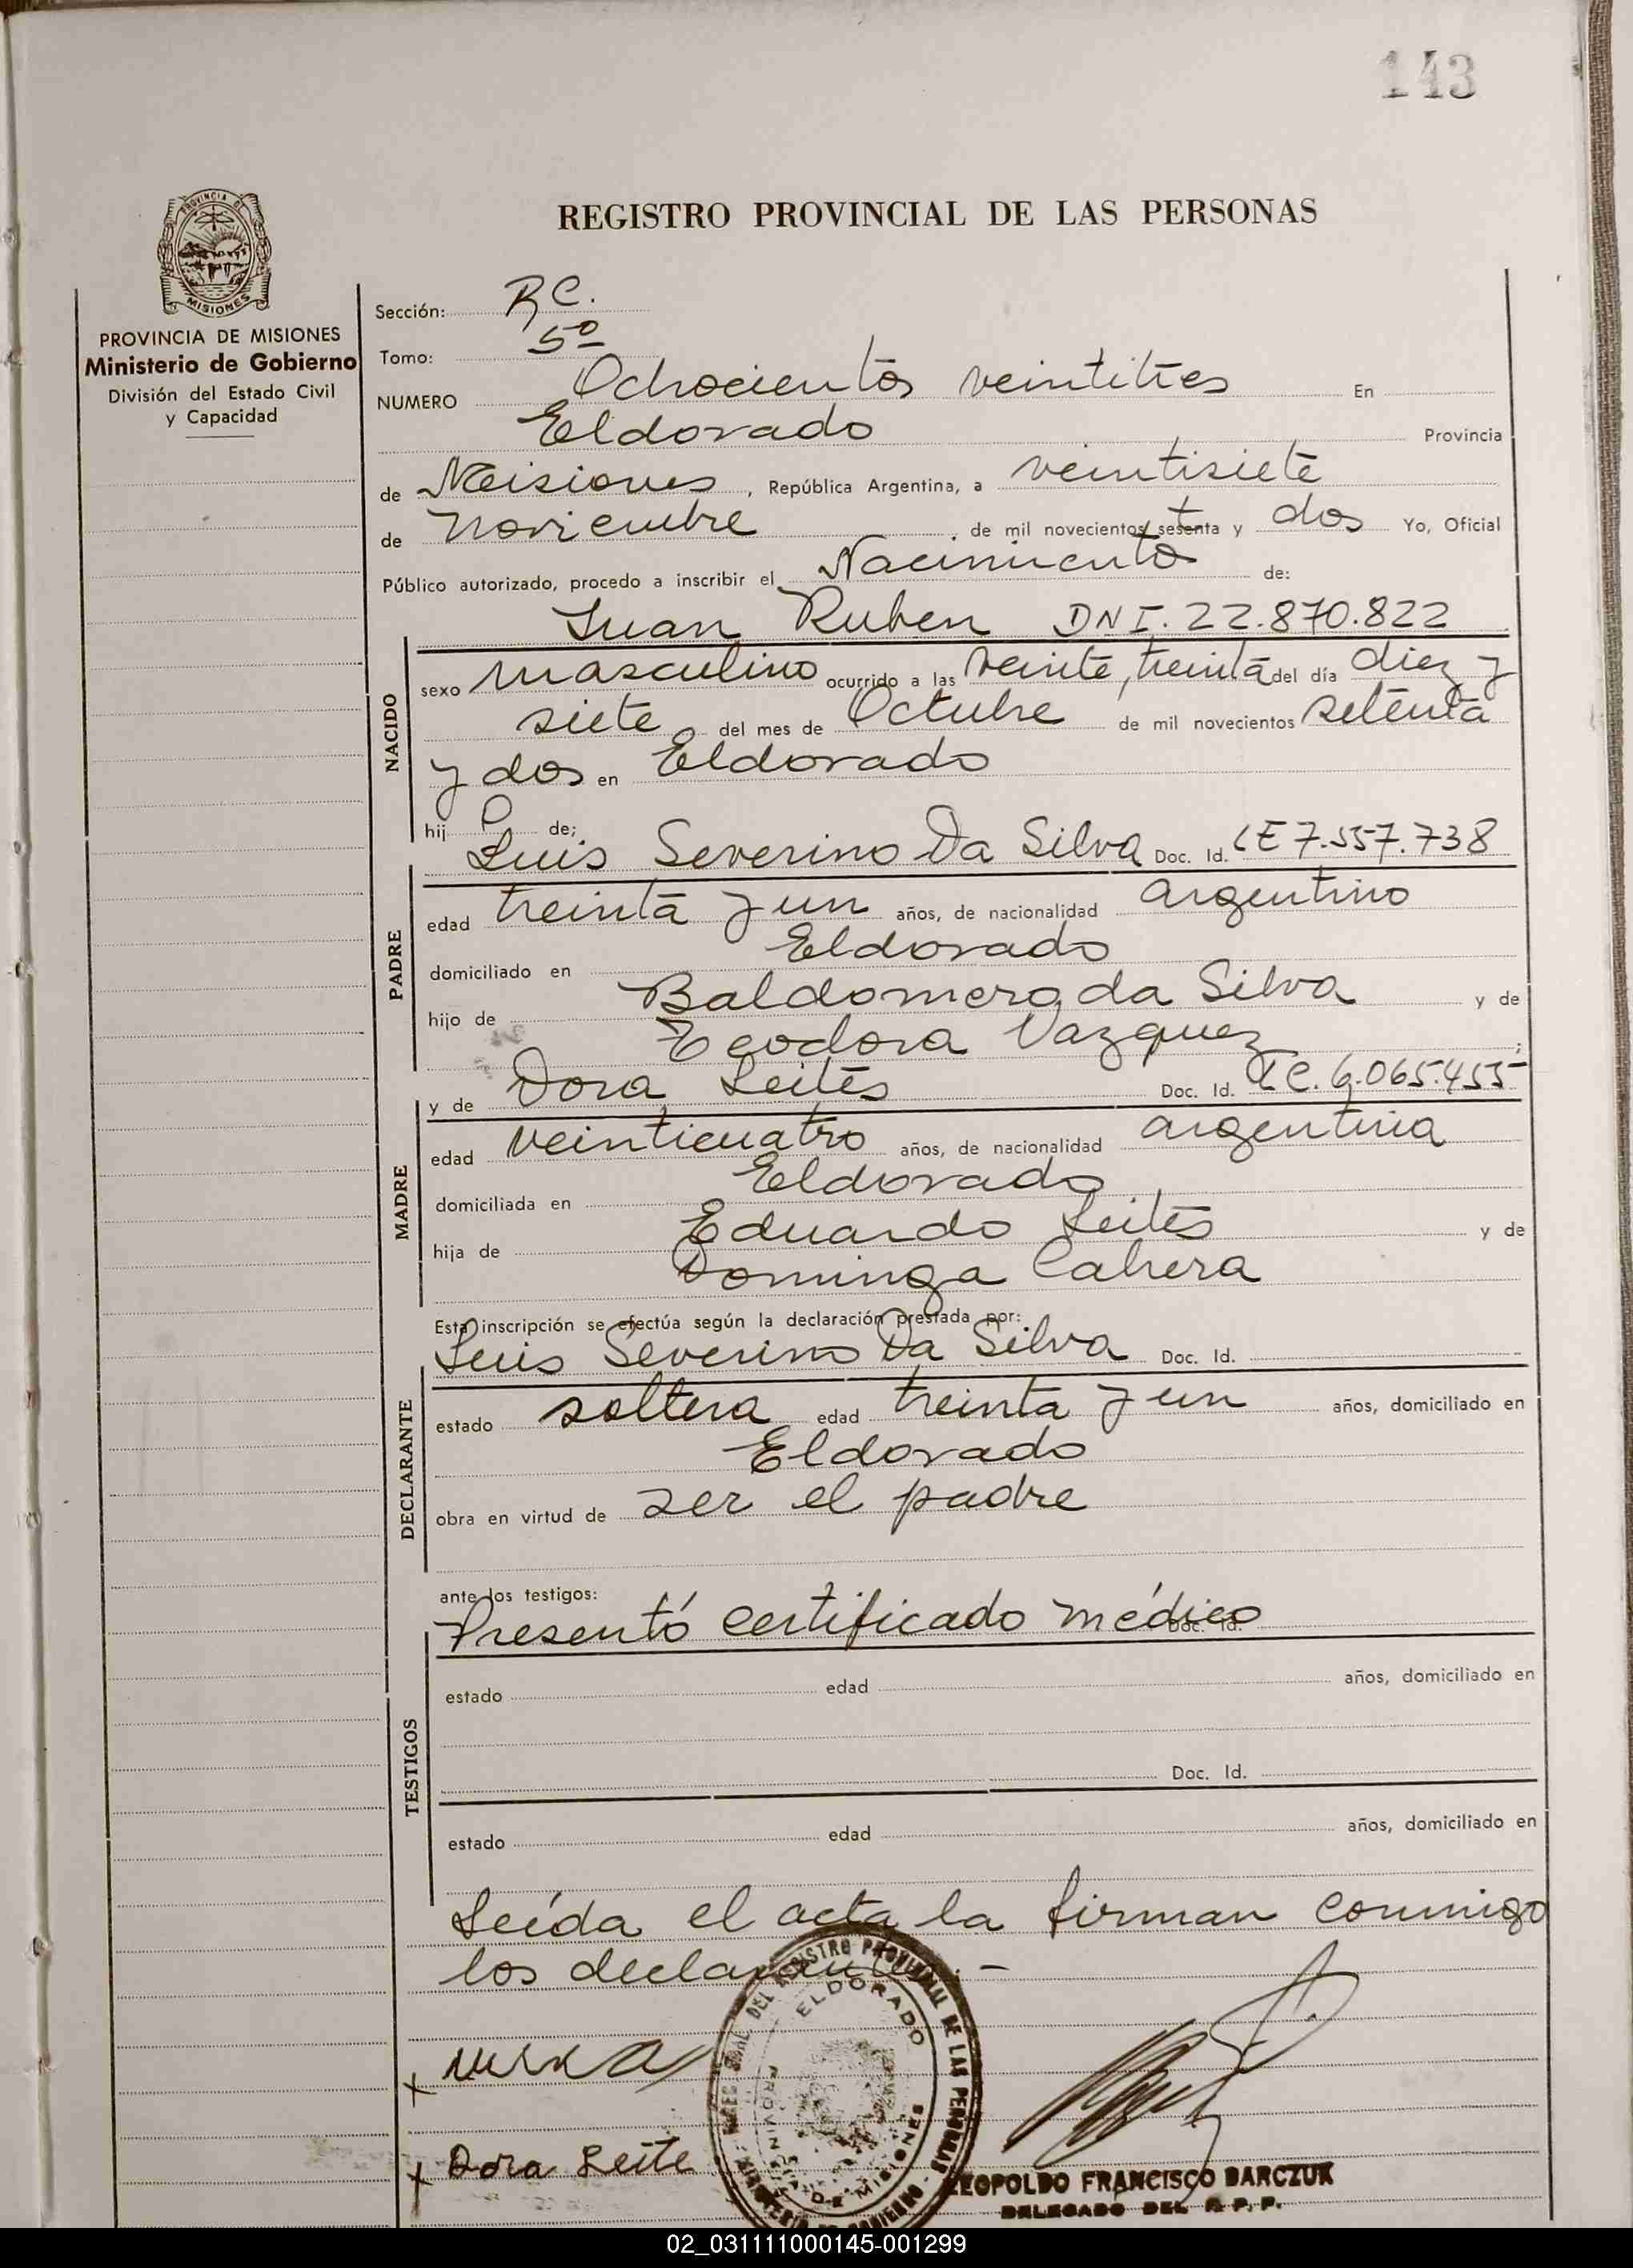 143
REGISTRO PROVINCIAL DE LAS PERSONAS
PROVINCIA DE MISIONES
PROVINCIA DE MISIONES
Ministerio de Gobierno
División del Estado Civil
y Capacidad
Sección: R C.
Tomo: 5º
NUMERO Ochocientos veintitres En
Eldorado Provincia
de Misiones, República Argentina, a veintisiete
de Noviembre de mil novecientos setenta y dos Yo, Oficial
Público autorizado, procedo a inscribir el Nacimiento de:
Juan Ruben DNI. 22.870.822
NACIDO
sexo masculino ocurrido a las veinte, treinta del día diez y
siete del mes de Octubre de mil novecientos setenta
y dos en Eldorado
hij o de;
Luis Severino Da Silva Doc. Id. LE 7.557.738
PADRE
edad treinta y un años, de nacionalidad argentino
domiciliado en Eldorado
hijo de Baldomero da Silva y de
Teodora Vazquez ;
y de Dora Leites Doc. Id. LC. 6.065.455
MADRE
edad veinticuatro años, de nacionalidad argentina
domiciliada en Eldorado
hija de Eduardo Leites y de
Dominga Cabrera
Esta inscripción se efectúa según la declaración prestada por:
Luis Severino Da Silva Doc. Id.
DECLARANTE
estado soltera edad treinta y un años, domiciliado en
Eldorado
obra en virtud de ser el padre
ante los testigos:
Presentó certificado médico Doc. Id.
TESTIGOS
estado edad años, domiciliado en
Doc. Id.
estado edad años, domiciliado en
Leída el acta la firman conmigo
los declarantes.-
DEL REGISTRO PROVINCIAL DE LAS PERSONAS
ELDORADO
PROVINCIA DE MISIONES
MINISTERIO DE GOBIERNO
x
x Dora Leite
LEOPOLDO FRANCISCO DARCZUK
DELEGADO DEL R. P. P.
02_031111000145-001299